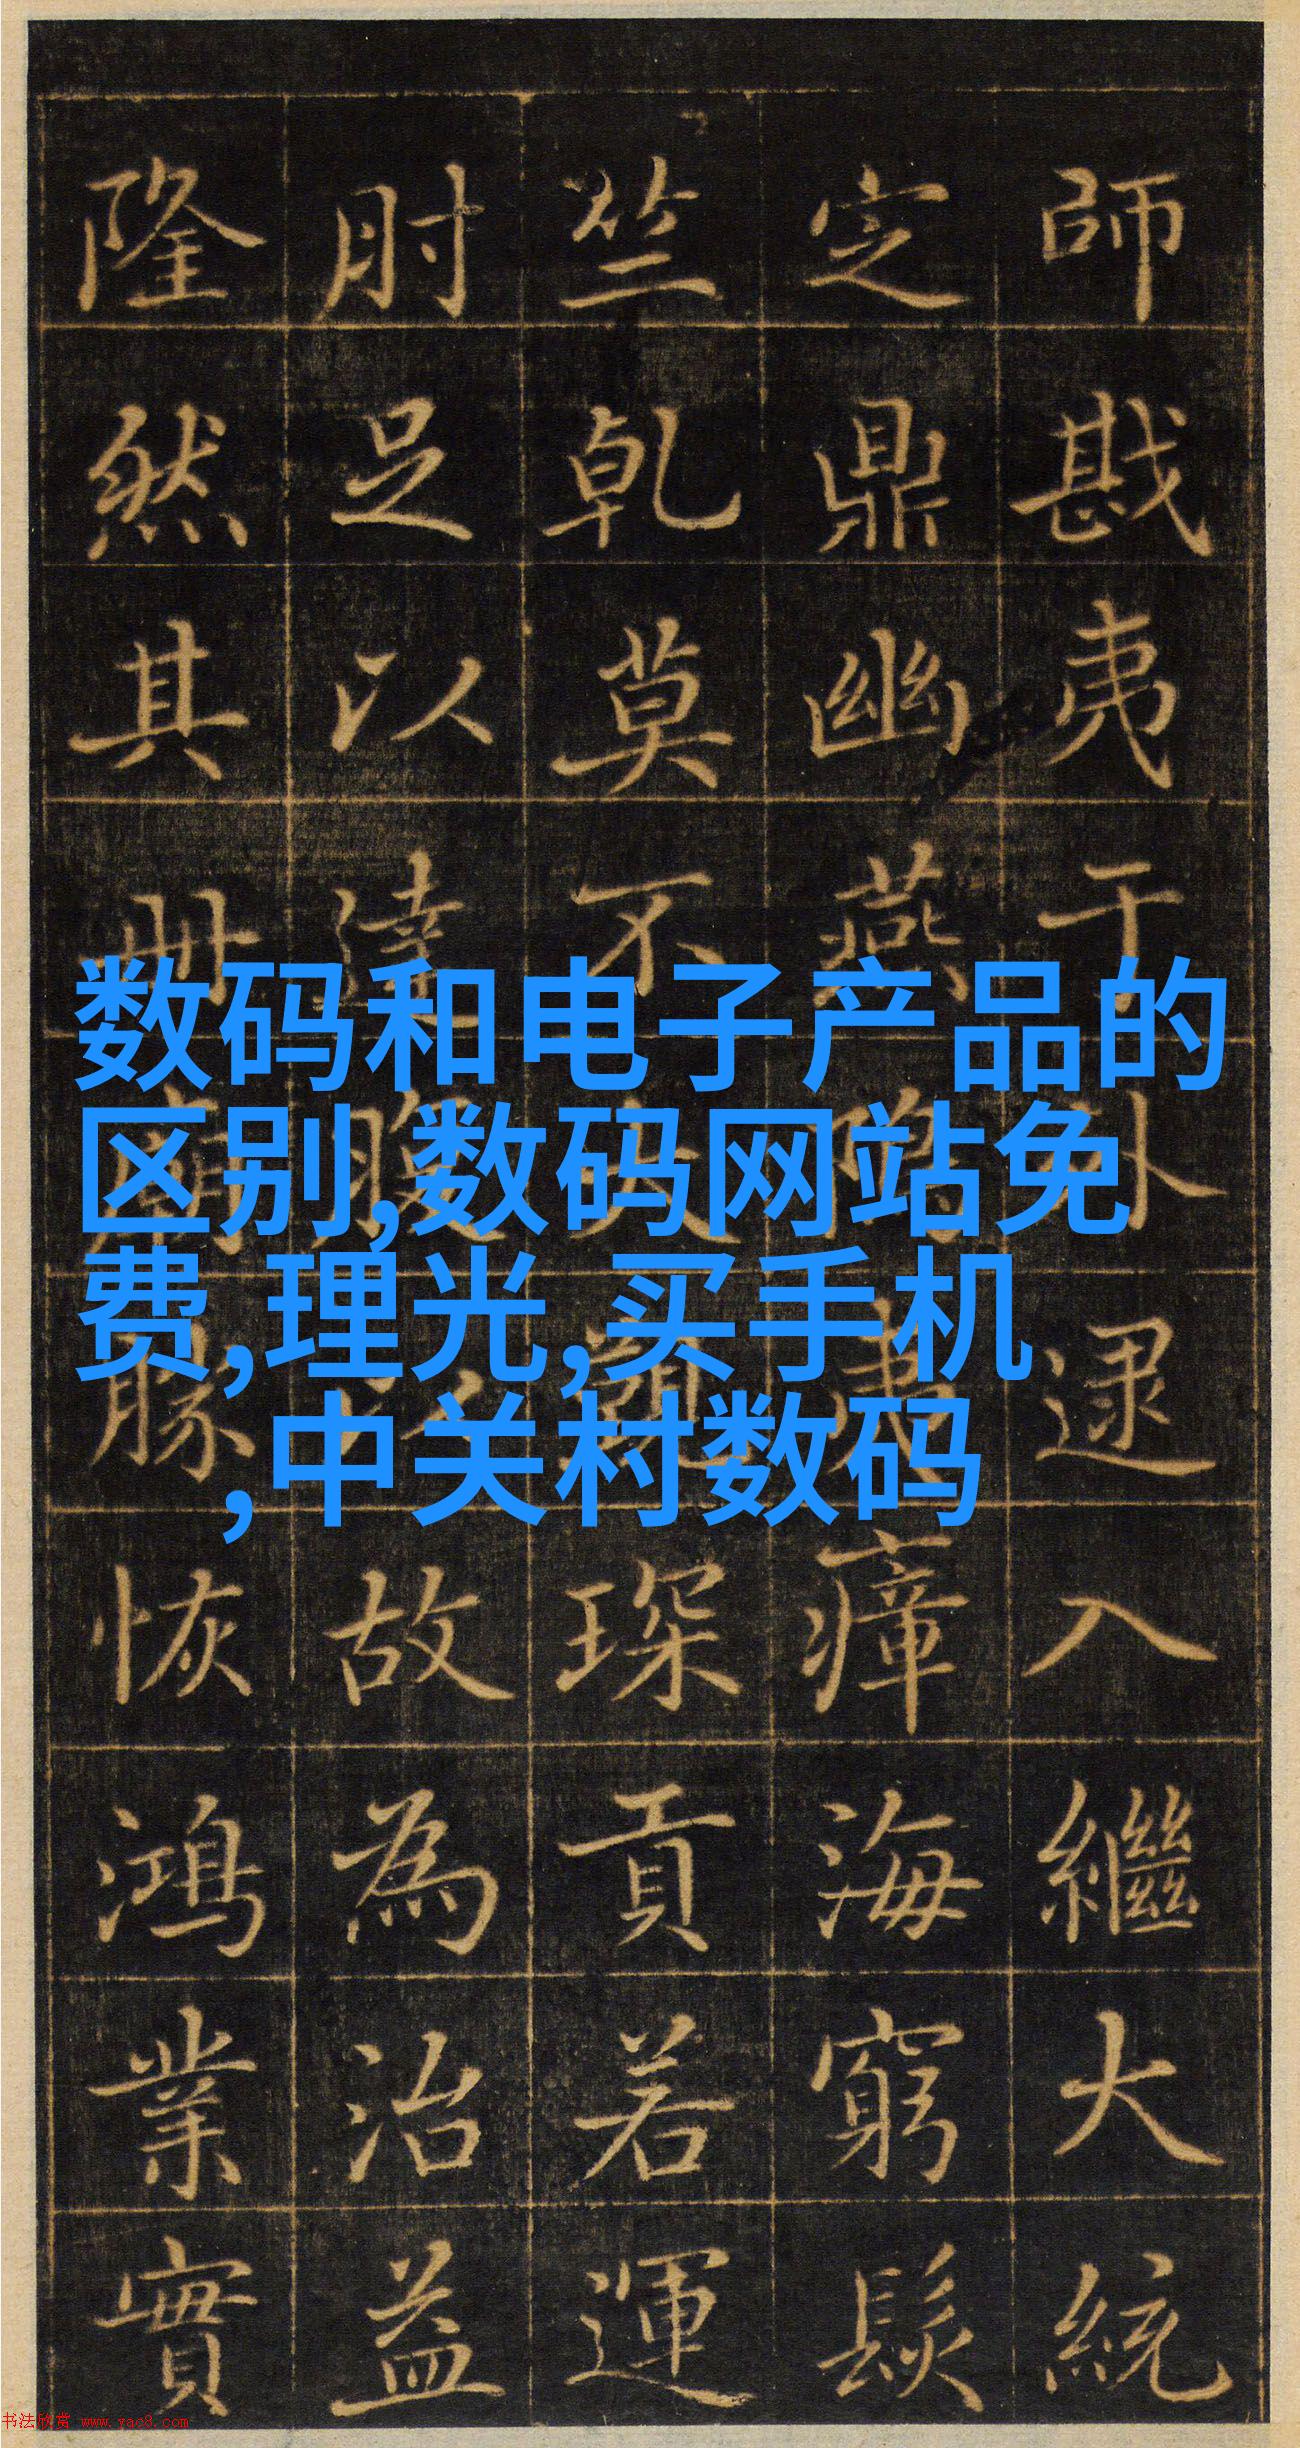 師戡夷于逮入繼大統
定鼎幽燕瘴海窮髮
竺乾莫不琛貢若運
肘足以達腹故為治益
隆然其冊廟勝恢鴻業實
数码和电子产品的
区别,数码网站免
费,理光,买手机
,中关村数码
书法欣赏 www.yac8.com